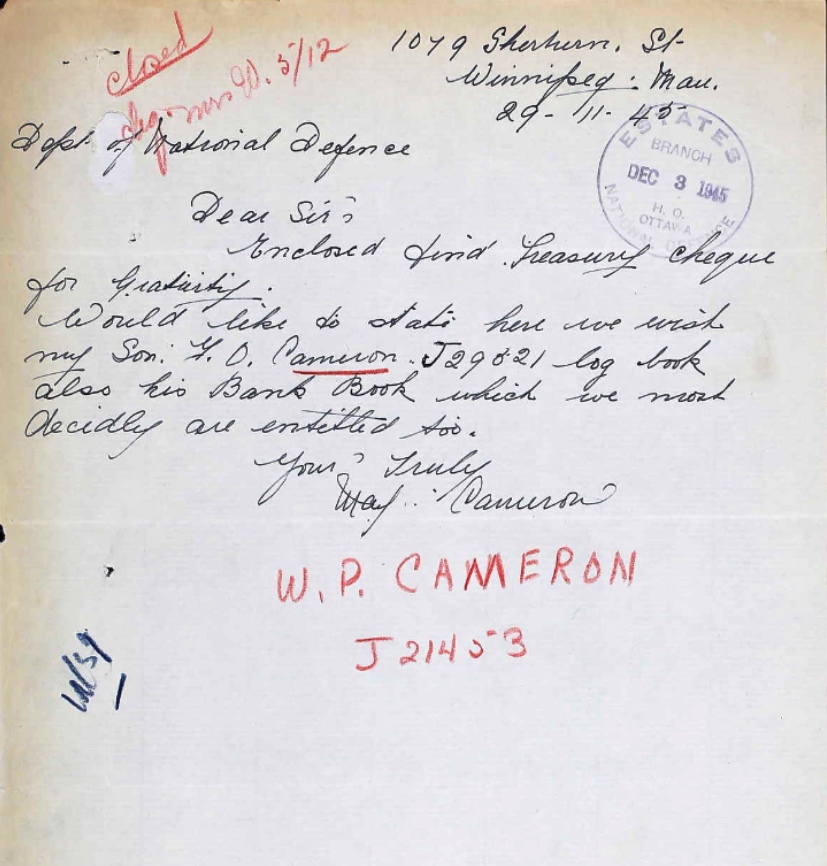 closed
5/12
1079 Sherburn. St
Winnipeg: Man.
29-11-45
ESTATES
BRANCH
DEC 3 1945
H. O.
OTTAWA
NATIONAL DEFENCE
Dept. of National Defence
Dear Sir's
Enclosed find Treasury cheque
for Gratuity.
Would like to state here we wish
my Son. Cameron. J29821 log book
also his Bank Book which we most
decidly are entitled too.
Your's Truly
May Cameron
W. P. CAMERON
J 21453